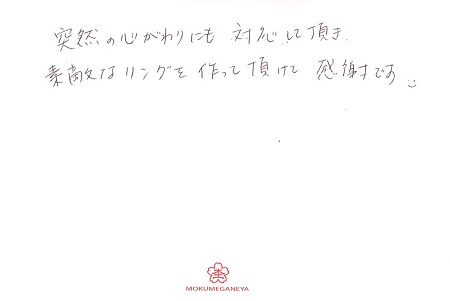 突然の心がわりにも 対応して頂き、
素敵なリングを 作って頂けて 感謝です
MOKUMEGANEYA